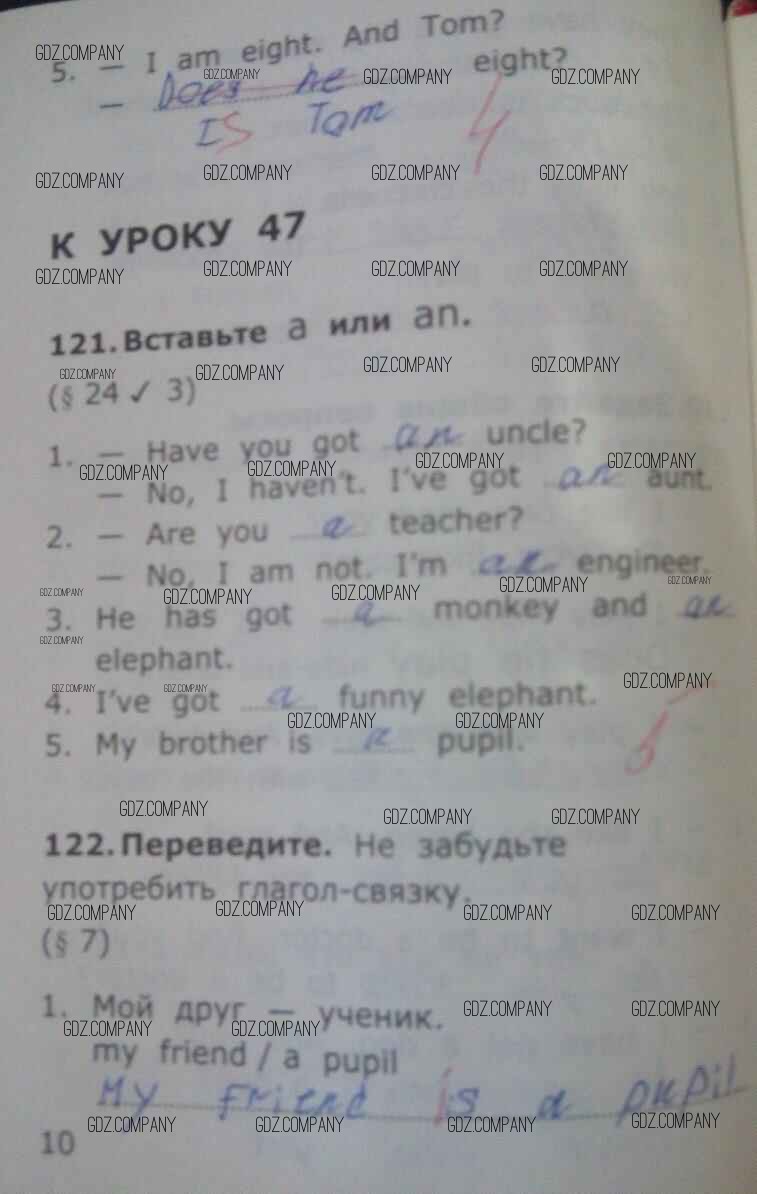 5. — I am eight. And Tom?
— Does he eight?
Is Tom 4
К УРОКУ 47
121. Вставьте a или an.
(§ 24 ✓ 3)
1. — Have you got an uncle?
— No, I haven't. I've got an aunt.
2. — Are you a teacher?
— No, I am not. I'm an engineer.
3. He has got a monkey and an
elephant.
4. I've got a funny elephant.
5. My brother is a pupil.
5-
122. Переведите. Не забудьте
употребить глагол-связку.
(§ 7)
1. Мой друг — ученик.
my friend / a pupil
My friend is a pupil
10
GDZ.COMPANY